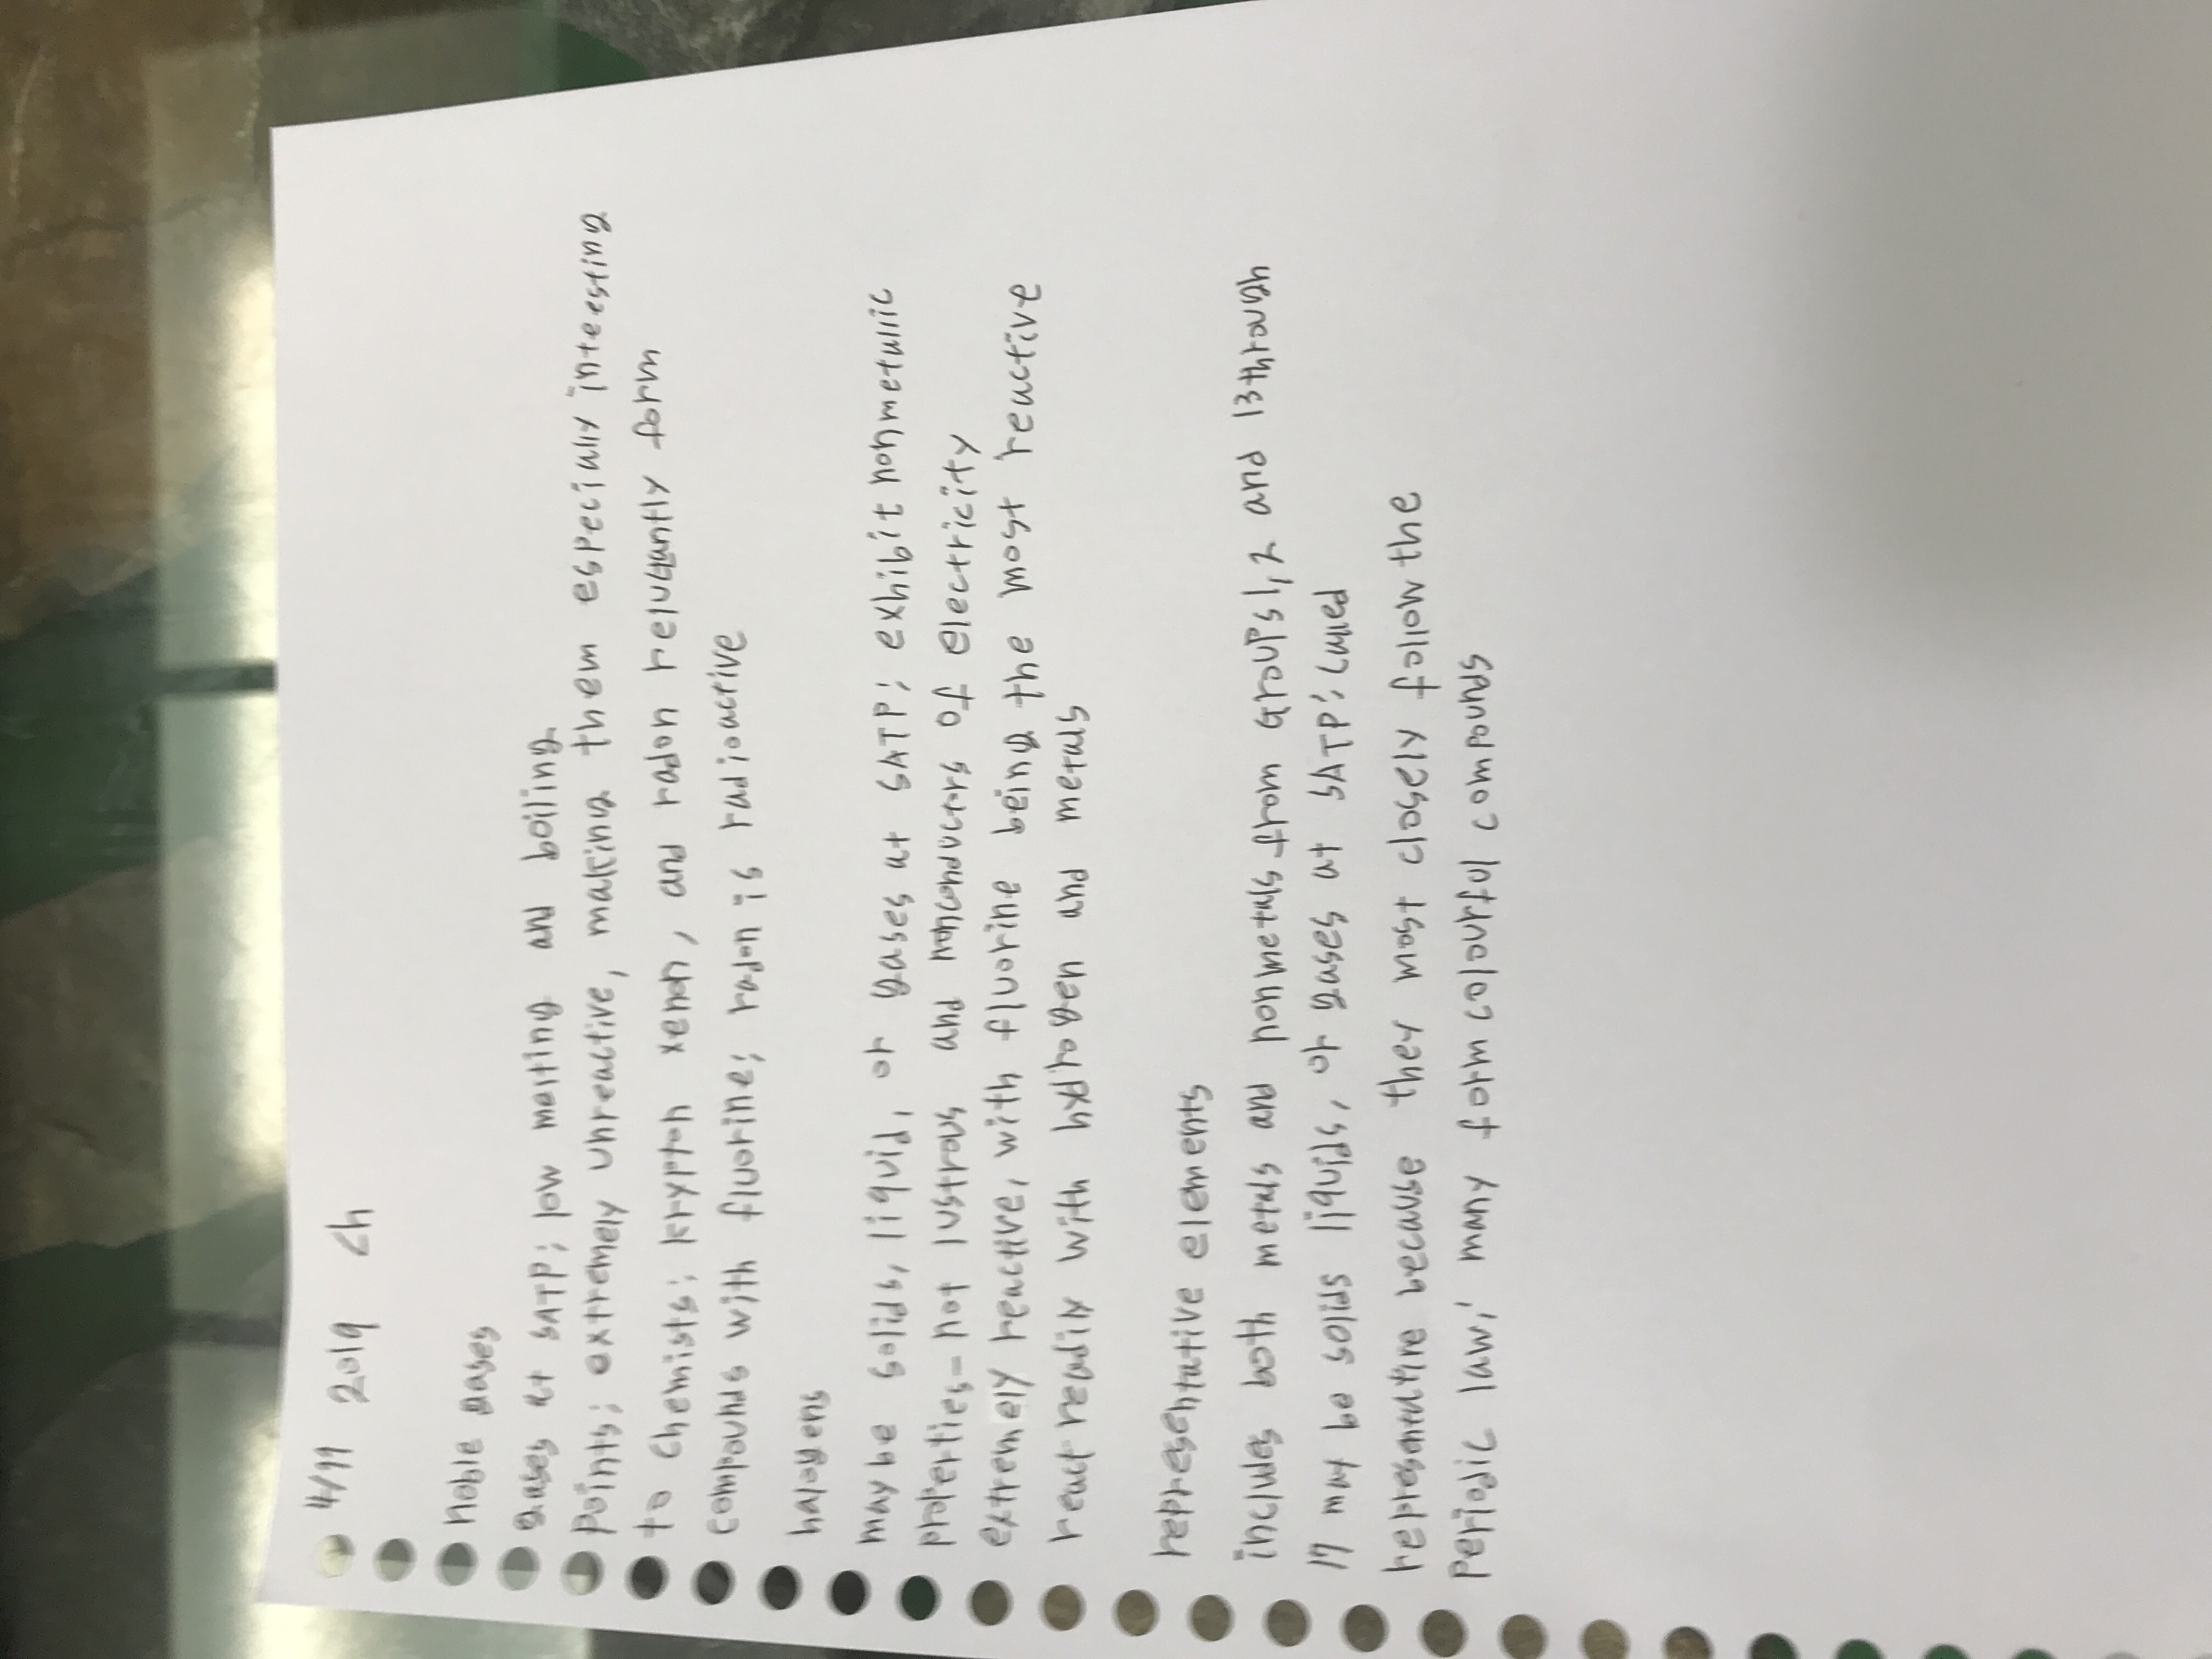 4/11 2019 ch
noble gases
gases at SATP; low melting and boiling
points; extremely unreactive, making them especially inteesting
to chemists; krypton xenon, and radon reluctantly form
compounds with fluorine; radon is radioactive
halogens
maybe solids, liquid, or gases at SATP; exhibit nonmetallic
properties- not lustrous and nonconductors of electricity
extremely reactive, with fluorine being the most reactive
react readily with hydrogen and metals
representative elements
includes both metals and nonmetals from Groups 1, 2 and 13 through
17 may be solids liquids, or gases at SATP; called
representative because they most closely follow the
periodic law; many form colourful compounds